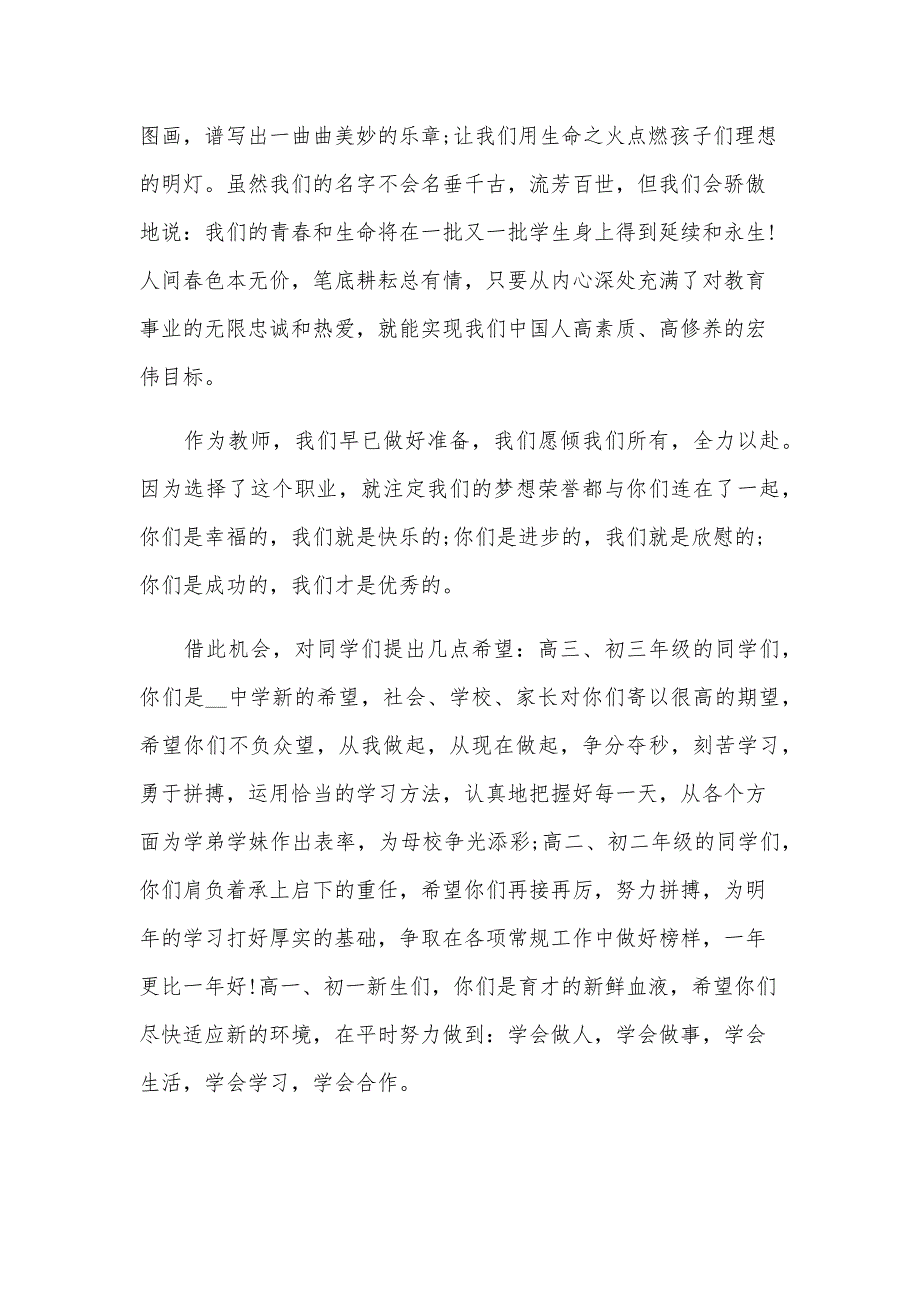 图画，谱写出一曲曲美妙的乐章;让我们用生命之火点燃孩子们理想
的明灯。虽然我们的名字不会名垂千古，流芳百世，但我们会骄傲
地说：我们的青春和生命将在一批又一批学生身上得到延续和永生!
人间春色本无价，笔底耕耘总有情，只要从内心深处充满了对教育
事业的无限忠诚和热爱，就能实现我们中国人高素质、高修养的宏
伟目标。
作为教师，我们早已做好准备，我们愿倾我们所有，全力以赴。
因为选择了这个职业，就注定我们的梦想荣誉都与你们连在了一起，
你们是幸福的，我们就是快乐的;你们是进步的，我们就是欣慰的;
你们是成功的，我们才是优秀的。
借此机会，对同学们提出几点希望：高三、初三年级的同学们，
你们是__中学新的希望，社会、学校、家长对你们寄以很高的期望，
希望你们不负众望，从我做起，从现在做起，争分夺秒，刻苦学习，
勇于拼搏，运用恰当的学习方法，认真地把握好每一天，从各个方
面为学弟学妹作出表率，为母校争光添彩;高二、初二年级的同学们，
你们肩负着承上启下的重任，希望你们再接再厉，努力拼搏，为明
年的学习打好厚实的基础，争取在各项常规工作中做好榜样，一年
更比一年好!高一、初一新生们，你们是育才的新鲜血液，希望你们
尽快适应新的环境，在平时努力做到：学会做人，学会做事，学会
生活，学会学习，学会合作。